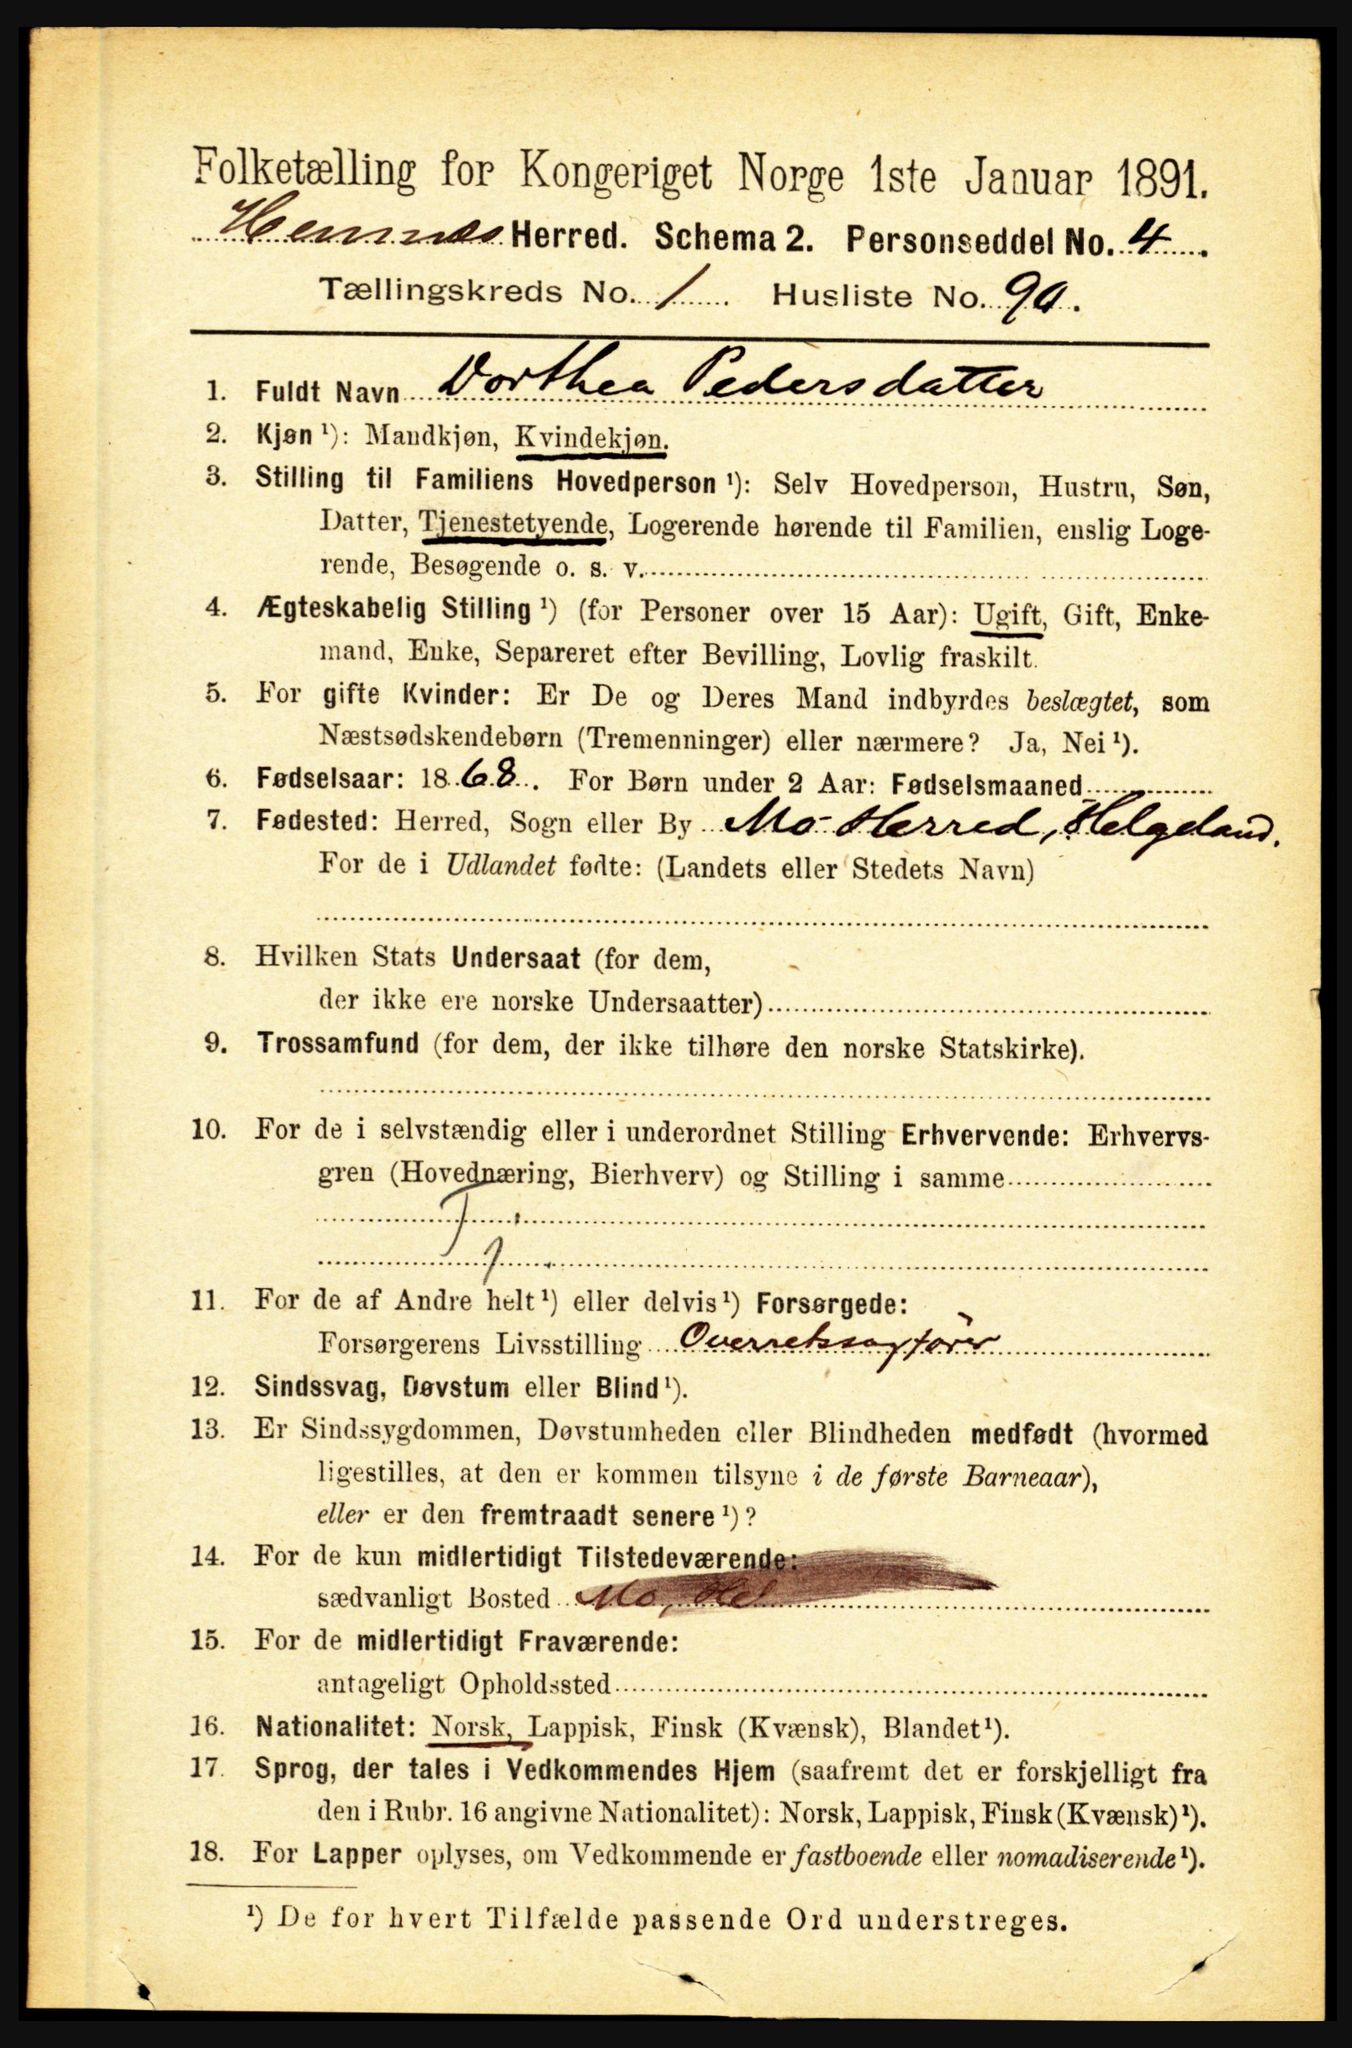 Folketælling for Kongeriget Norge 1ste Januar 1891.
Hemnes Herred. Schema 2. Personseddel No. 4.
Tællingskreds No. 1 Husliste No. 90.
1. Fuldt Navn Dorthea Pedersdatter
2. Kjøn ¹): Mandkjøn, Kvindekjøn.
3. Stilling til Familiens Hovedperson ¹): Selv Hovedperson, Hustru, Søn,
Datter, Tjenestetyende, Logerende hørende til Familien, enslig Loge-
rende, Besøgende o. s. v.
4. Ægteskabelig Stilling ¹) (for Personer over 15 Aar): Ugift, Gift, Enke-
mand, Enke, Separeret efter Bevilling, Lovlig fraskilt.
5. For gifte Kvinder: Er De og Deres Mand indbyrdes beslægtet, som
Næstsødskendebørn (Tremenninger) eller nærmere? Ja, Nei ¹).
6. Fødselsaar: 1868. For Børn under 2 Aar: Fødselsmaaned
7. Fødested: Herred, Sogn eller By Mo Herred, Helgeland.
For de i Udlandet fødte: (Landets eller Stedets Navn)
8. Hvilken Stats Undersaat (for dem,
der ikke ere norske Undersaatter)
9. Trossamfund (for dem, der ikke tilhøre den norske Statskirke).
10. For de i selvstændig eller i underordnet Stilling Erhvervende: Erhvervs-
gren (Hovednæring, Bierhverv) og Stilling i samme
T.
11. For de af Andre helt ¹) eller delvis ¹) Forsørgede:
Forsørgerens Livsstilling Overretssagfører
12. Sindssvag, Døvstum eller Blind ¹).
13. Er Sindssygdommen, Døvstumheden eller Blindheden medfødt (hvormed
ligestilles, at den er kommen tilsyne i de første Barneaar),
eller er den fremtraadt senere ¹)?
14. For de kun midlertidigt Tilstedeværende:
sædvanligt Bosted Mo, Hel
15. For de midlertidigt Fraværende:
antageligt Opholdssted
16. Nationalitet: Norsk, Lappisk, Finsk (Kvænsk), Blandet ¹).
17. Sprog, der tales i Vedkommendes Hjem (saafremt det er forskjelligt fra
den i Rubr. 16 angivne Nationalitet): Norsk, Lappisk, Finsk (Kvænsk) ¹).
18. For Lapper oplyses, om Vedkommende er fastboende eller nomadiserende ¹).
¹) De for hvert Tilfælde passende Ord understreges.